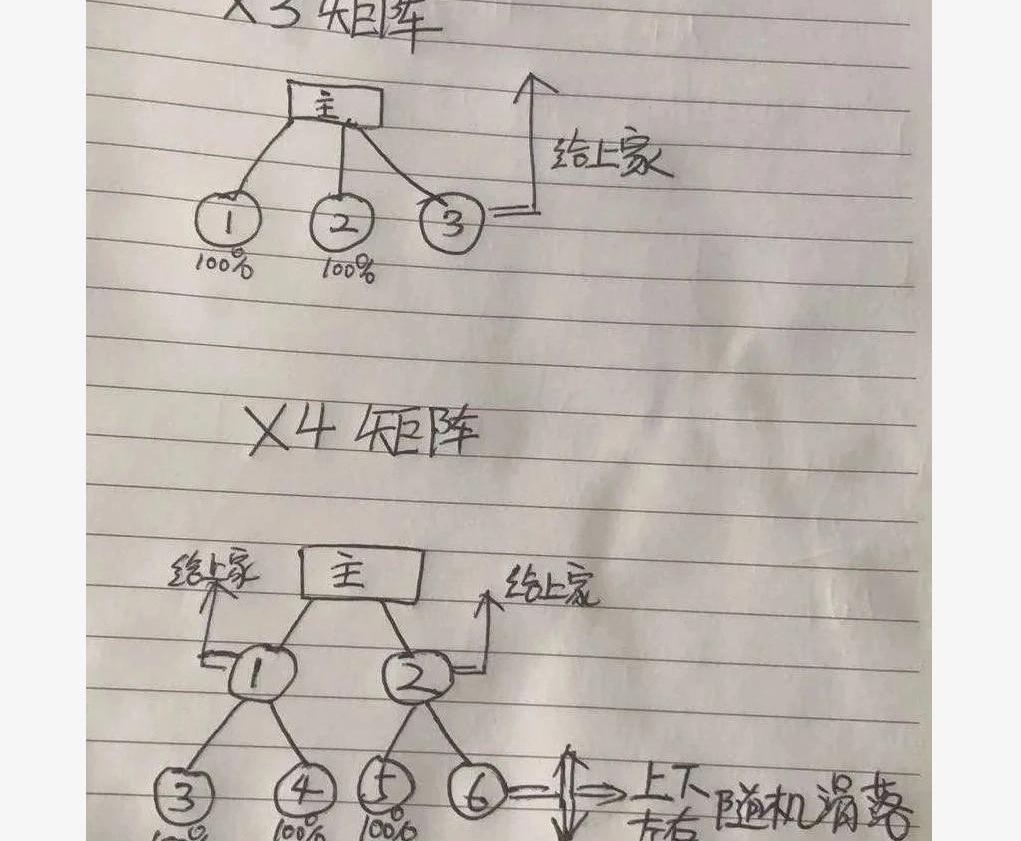 X3矩阵
主
给上家
1 2 3
100% 100%
X4矩阵
给上家 主 给上家
1 2
3 4 5 6
上下 随机滑落
左右
100% 100% 100%